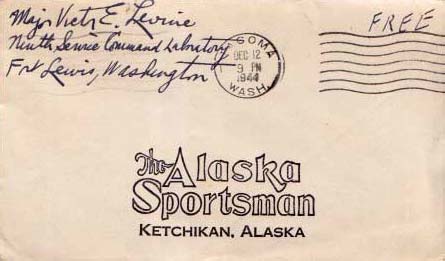 Major Victor E. Levine
FREE
Ninth Service Command Laboratory
Fort Lewis, Washington
SOMA
DEC 12
9 PM
1944
WASH.
The Alaska
Sportsman
KETCHIKAN, ALASKA